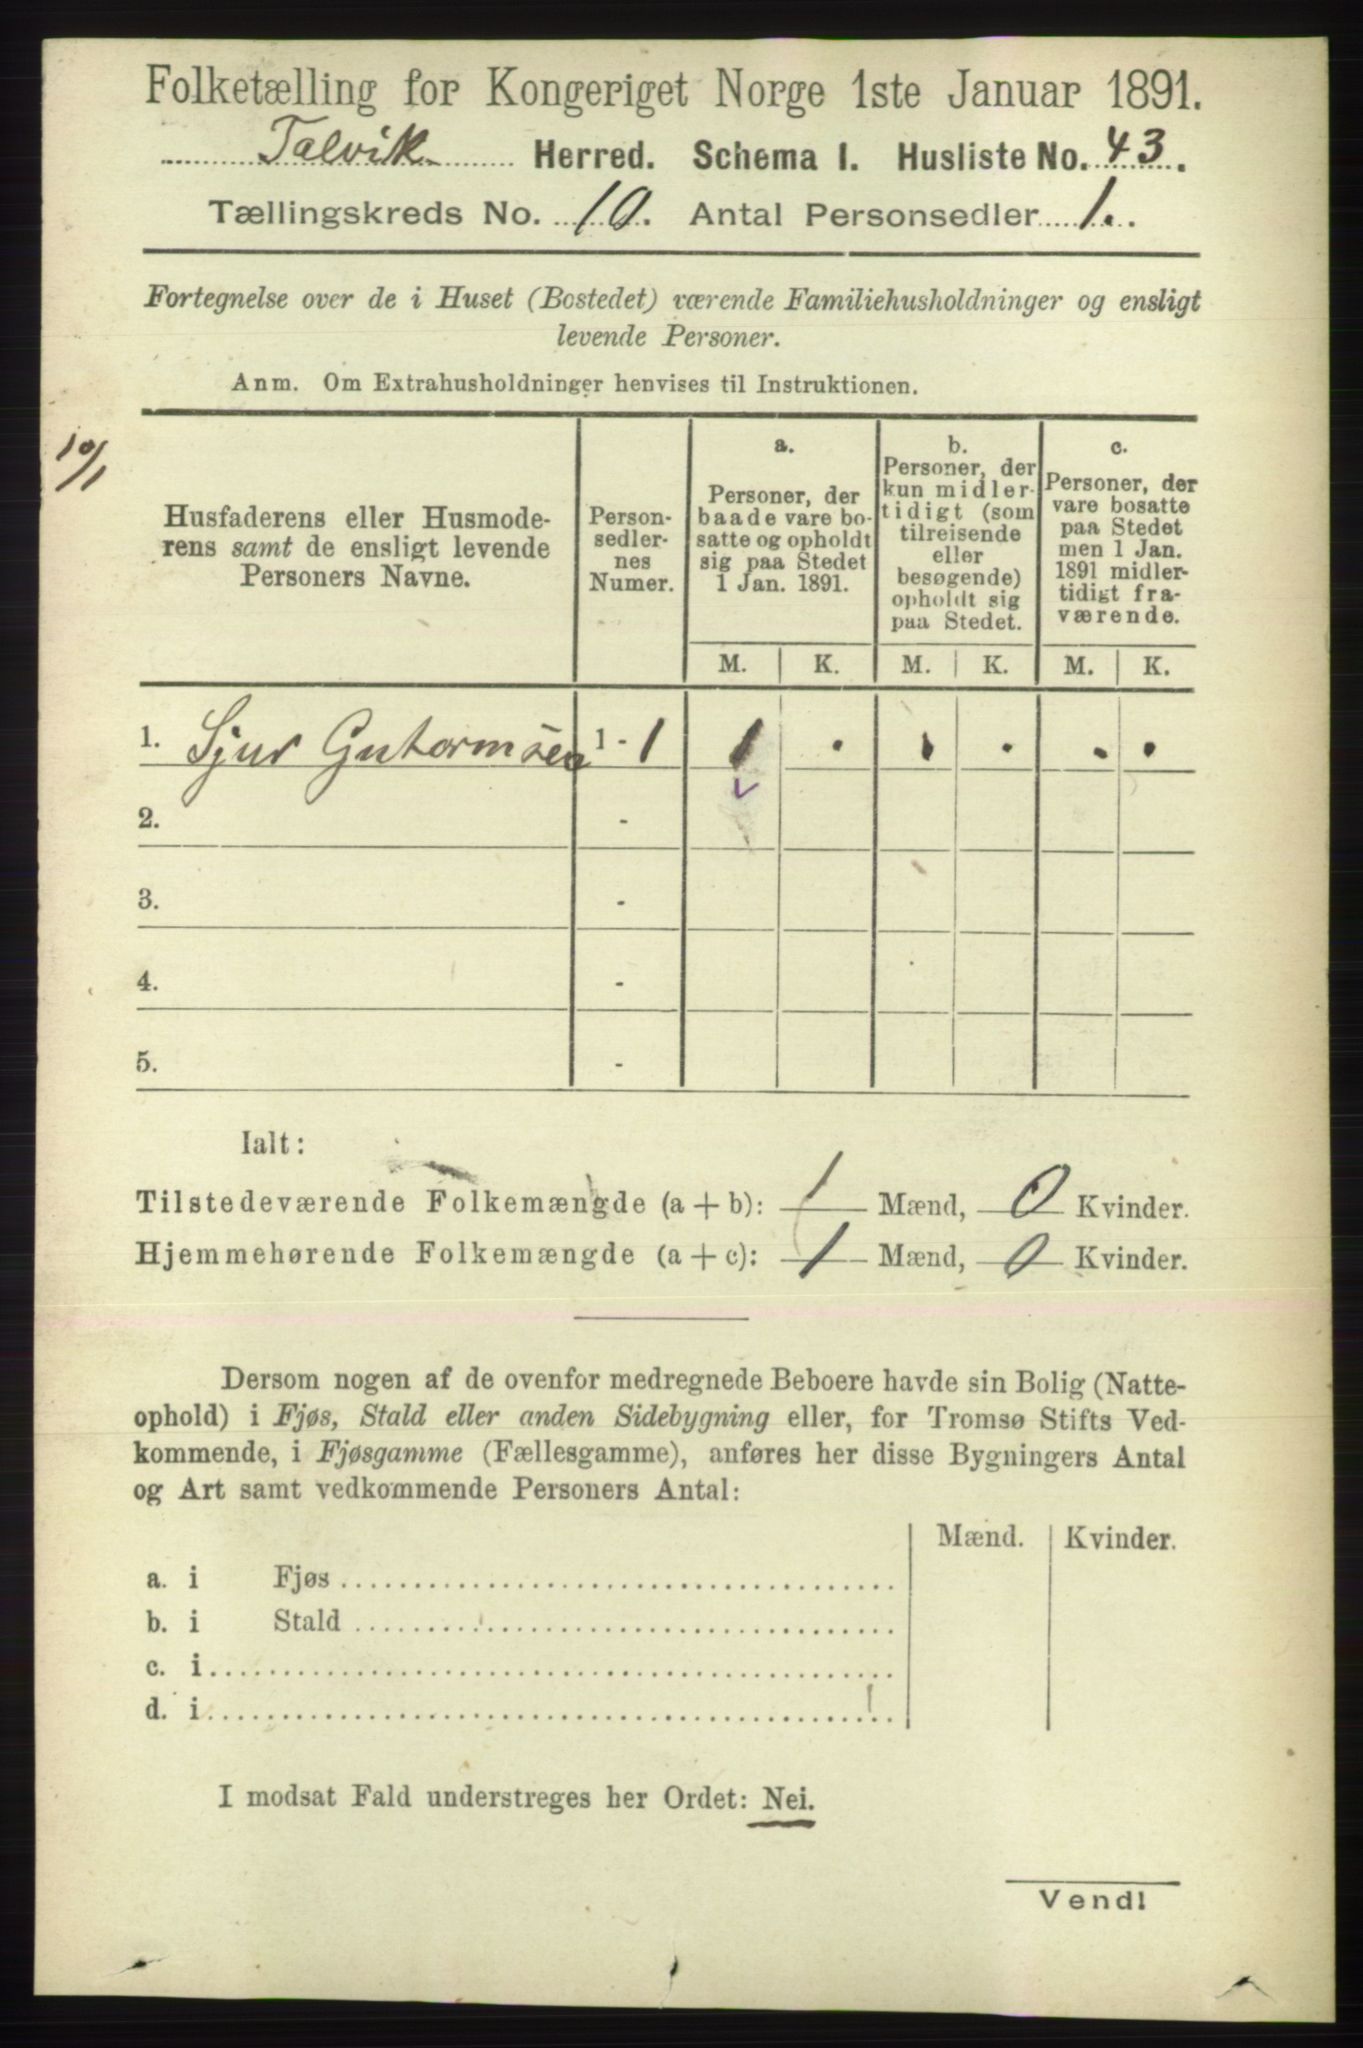 Folketælling for Kongeriget Norge 1ste Januar 1891.
Talvik Herred. Schema I. Husliste No. 43.
Tællingskreds No. 10. Antal Personsedler 1.
Fortegnelse over de i Huset (Bostedet) værende Familiehusholdninger og ensligt
levende Personer.
Anm. Om Extrahusholdninger henvises til Instruktionen.
10/1
Husfaderens eller Husmode-
rens samt de ensligt levende
Personers Navne.
Person-
sedler-
nes
Numer.
a.
Personer, der
baade vare bo-
satte og opholdt
sig paa Stedet
1 Jan. 1891.
b.
Personer, der
kun midler-
tidigt (som
tilreisende
eller
besøgende)
opholdt sig
paa Stedet.
c.
Personer, der
vare bosatte
paa Stedet
men 1 Jan.
1891 midler-
tidigt fra-
værende.
M. K. M. K. M. K.
1. Sjur Gutormsen 1 - 1 1 . . . . .
2. -
3. -
4. -
5. -
Ialt:
Tilstedeværende Folkemængde (a + b): 1 Mænd, 0 Kvinder.
Hjemmehørende Folkemængde (a + c): 1 Mænd, 0 Kvinder.
Dersom nogen af de ovenfor medregnede Beboere havde sin Bolig (Natte-
ophold) i Fjøs, Stald eller anden Sidebygning eller, for Tromsø Stifts Ved-
kommende, i Fjøsgamme (Fællesgamme), anføres her disse Bygningers Antal
og Art samt vedkommende Personers Antal:
Mænd. Kvinder.
a. i Fjøs
b. i Stald
c. i
d. i
I modsat Fald understreges her Ordet: Nei.
Vend!